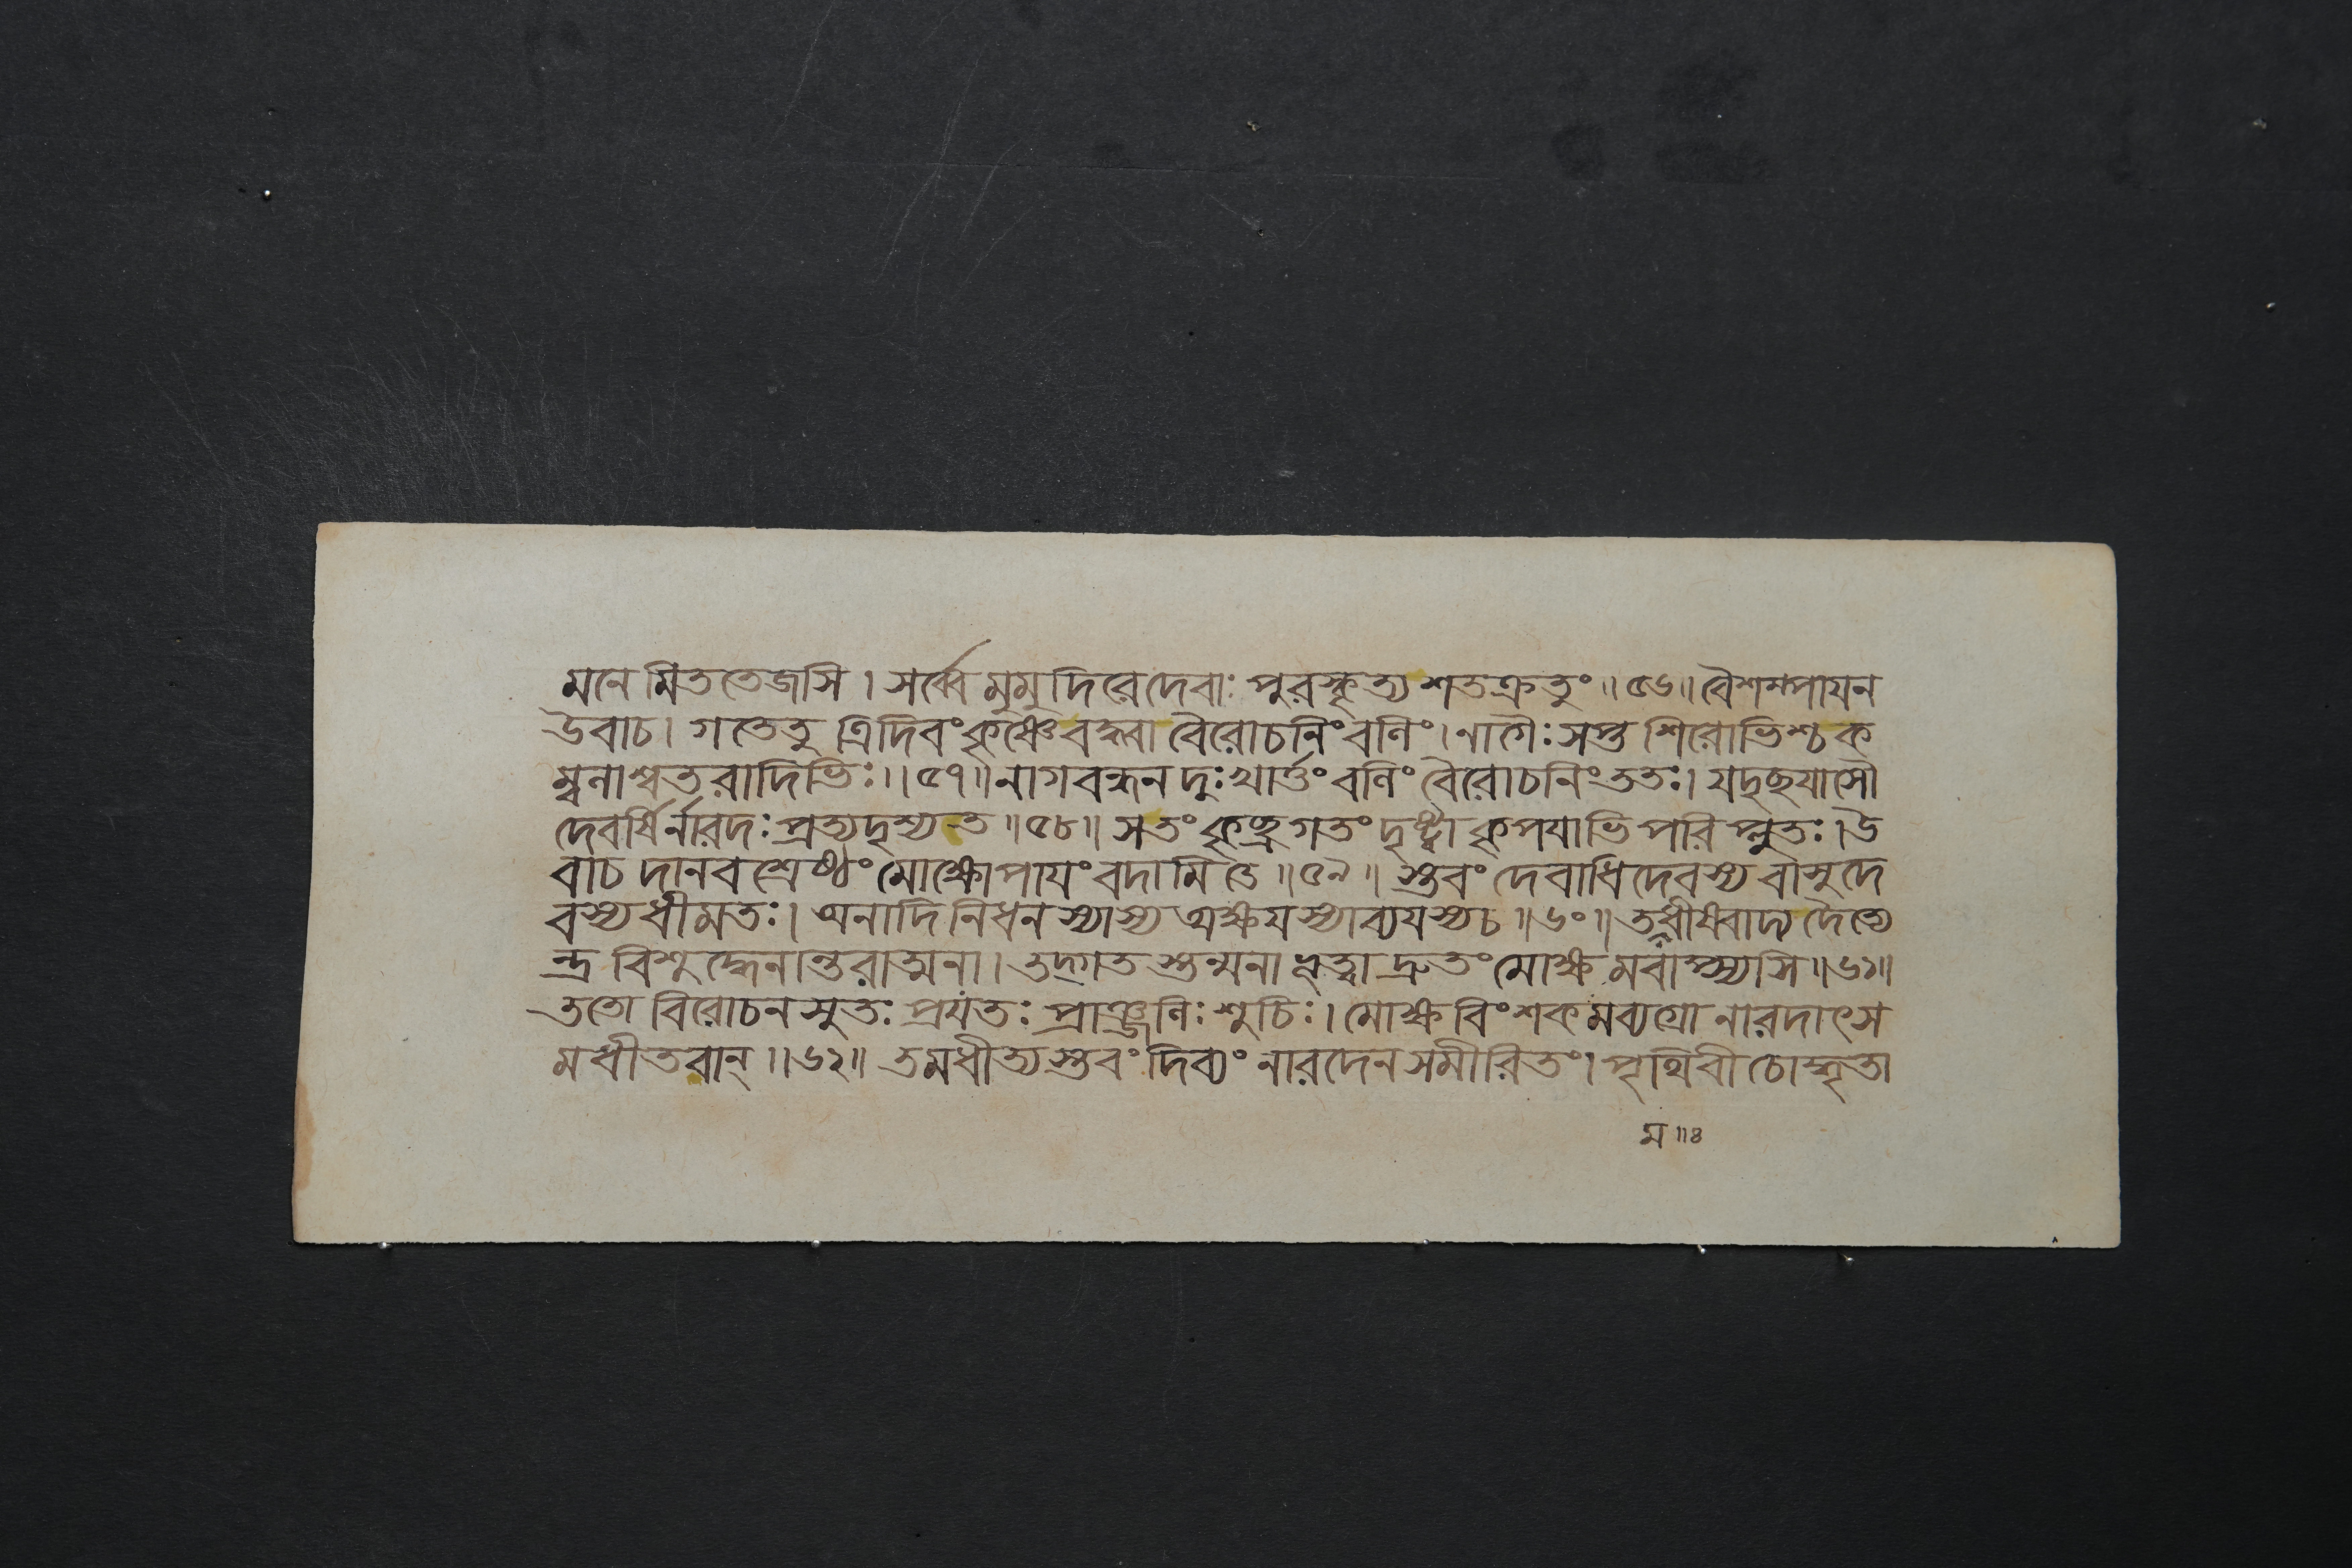 মনেমিততেজসি । সর্ব্বে মুমুদিরেদেবাঃ পুরস্কৃত্য শতক্রতুং ॥৫৬॥ বৈশম্পায়ন
উবাচ । গতেতু ত্রিদিবং কৃষ্ণেবদ্ধ্বা বৈরোচনিং বলিং । নাগৈঃ সপ্ত শিরোভিশ্চ ক
ম্বলাশ্বতরাদিভিঃ ॥৫৭॥ নাগবন্ধনদুঃখার্ত্তং বলিং বৈরোচনিং ততঃ । যদৃছয়াসৌ
দেবর্ষির্নারদঃ প্রত্যদৃশ্যত ॥৫৮॥ সতং কৃছ্রগতং দৃষ্ট্বা কৃপয়াভিপরিপ্লুতঃ । উ
বাচ দানবশ্রেষ্ঠং মোক্ষোপায়ং বদামি তে ॥৫৯॥ স্তবং দেবাধিদেবস্য বাসুদে
বস্য ধীমতঃ । অনাদিনিধনস্যাস্য অক্ষয়স্যাব্যয়স্যচ ॥৬০॥ তদধীষ্বাদ্য দৈত্যে
ন্দ্র বিশুদ্ধেনান্তরাত্মনা । তদ্গতস্তন্মনা ভূত্বা দ্রুতং মোক্ষমবাপ্স্যসি ॥৬১॥
ততো বিরোচনসুতঃ প্রয়তঃ প্রাঞ্জলিঃ শুচিঃ । মোক্ষবিংশকমব্যগ্রো নারদাৎস
মধীতবান্ ॥৬২॥ তমধীত্যস্তবং দিব্যং নারদেনসমীরিতং । পৃথিবী চোদ্ধৃতা
ম ॥৪